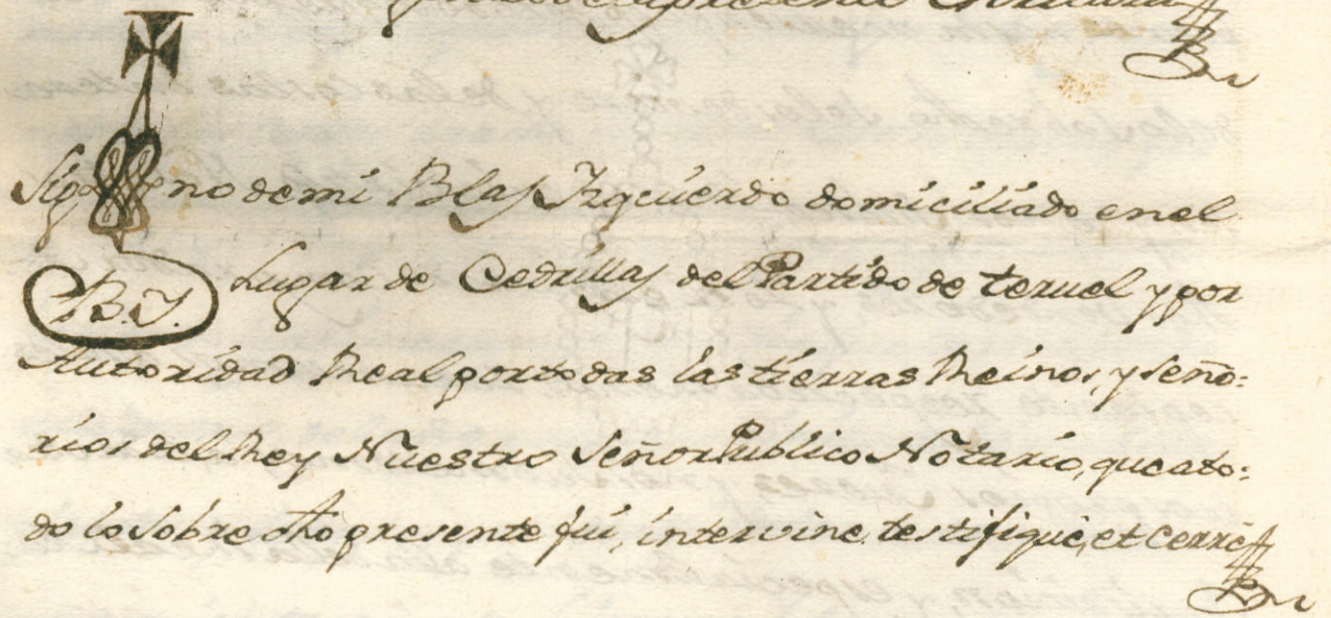 presente
Sig no de mi Blas Izquierdo domiciliado en el
Lugar de Cedrillas del Partido de teruel y por
B. Y.
Autoridad Real por todas las tierras Reinos, y seño=
rios del Rey Nuestro Señor Publico Notario, que a to=
do lo sobre dho presente fui, intervine, testifiquè, et cerrè